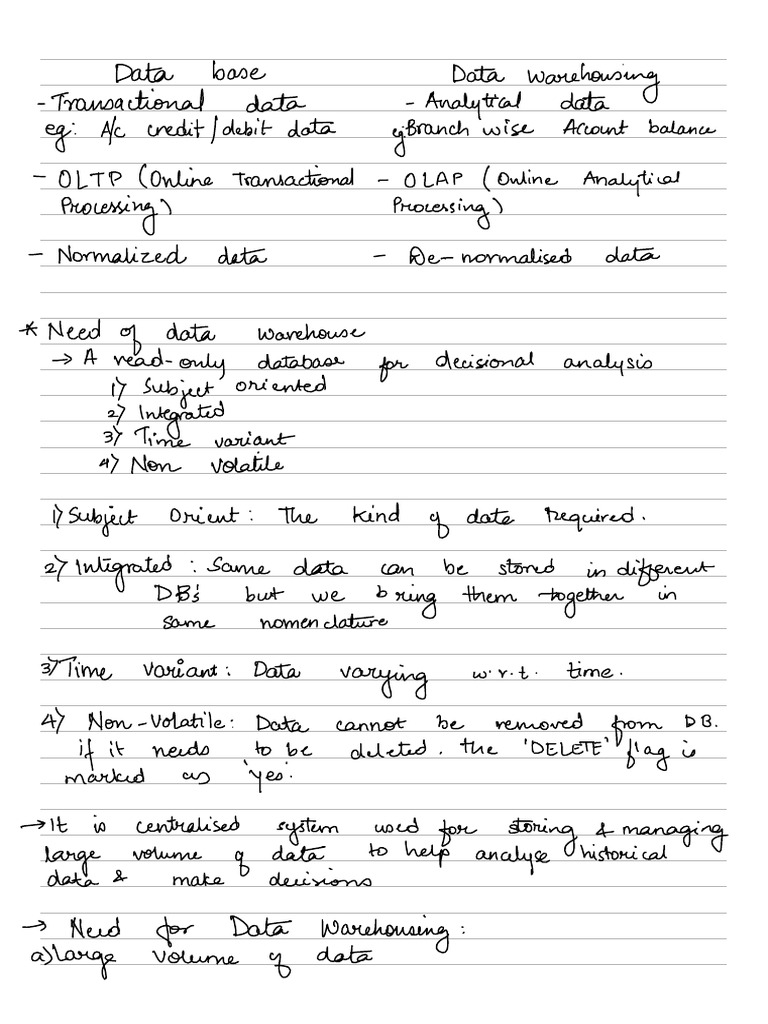 Data base Data Warehousing
- Transactional data - Analytical data
eg: A/c credit/debit data eg Branch wise Account balance
- OLTP (Online Transactional - OLAP (Online Analytical
Processing) Processing)
- Normalized data - De-normalised data
* Need of data warehouse
→ A read-only database for decisional analysis
1) Subject oriented
2) Integrated
3) Time variant
4) Non volatile
1) Subject Orient: The kind of data required.
2) Integrated: Same data can be stored in different
DB's but we bring them together in
same nomenclature
3) Time variant: Data varying w.r.t. time.
4) Non-Volatile: Data cannot be removed from DB.
if it needs to be deleted. the 'DELETE' flag is
marked as 'yes'.
→ It is centralised system used for storing & managing
large volume of data to help analyse historical
data & make decisions
→ Need for Data Warehousing:
a) Large volume of data